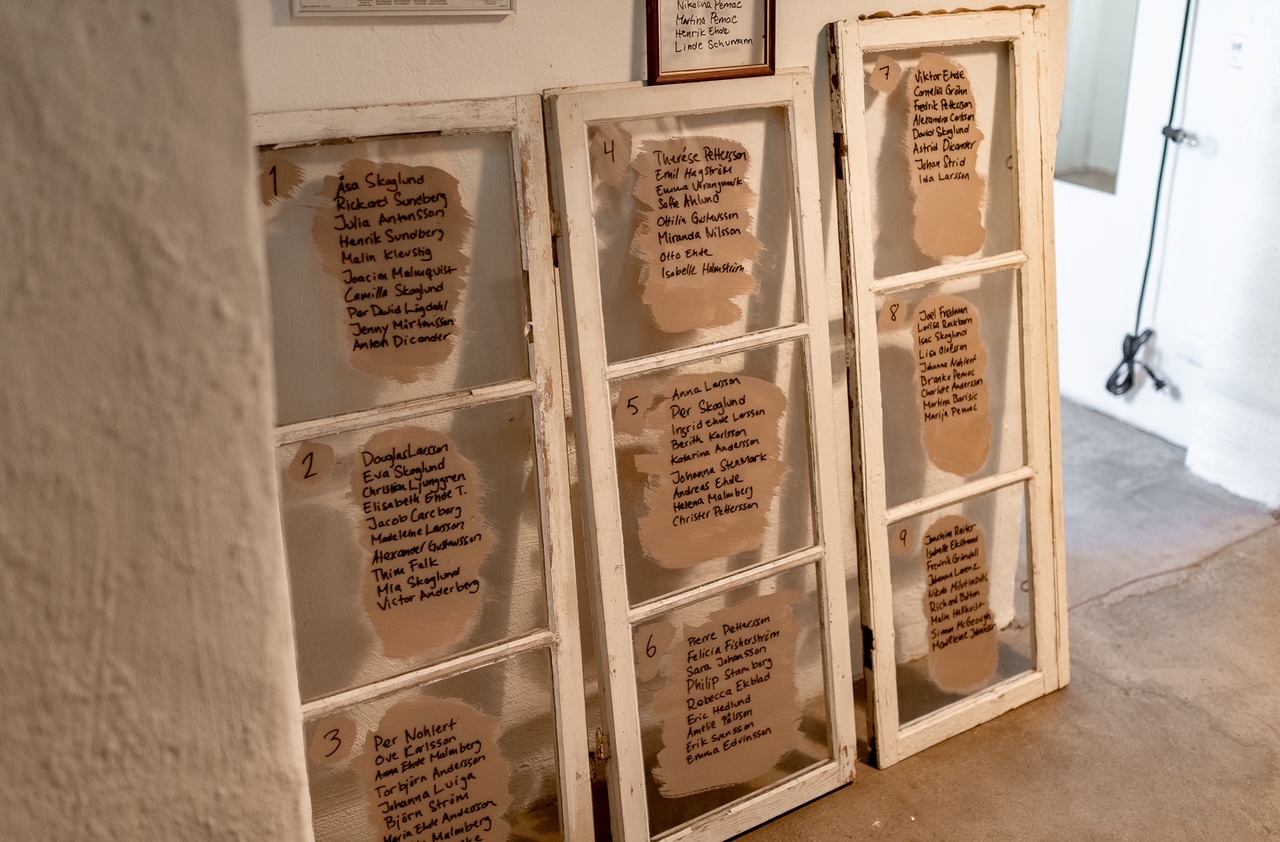 Nikolina Pemac
Martina Pemac
Henrik Ehde
Linde Schumann
1
Åsa Skoglund
Rickard Sundberg
Julia Antonsson
Henrik Sundberg
Malin Klevstig
Joacim Malmquist
Camilla Skoglund
Per David Lögdahl
Jenny Mårtensson
Anton Dicander
2
Douglas Larsson
Eva Skoglund
Christian Ljunggren
Elisabeth Ehde T.
Jacob Careborg
Madeleine Larsson
Alexander Gustavsson
Thim Falk
Mia Skoglund
Victor Anderberg
3
Per Nohlert
Ove Karlsson
Anna Ehde Malmberg
Torbjörn Andersson
Johanna Luiga
Björn Ström
Maria Ehde Andersson
Malmberg
4
Therése Pettersson
Emil Hagström
Emma Vörangmark
Sofie Åhlund
Ottilia Gustavsson
Miranda Nilsson
Otto Ehde
Isabelle Holmström
5
Anna Larsson
Per Skoglund
Ingrid Ehde Larsson
Berith Karlsson
Katarina Andersson
Johanna Stenmark
Andreas Ehde
Helena Malmberg
Christer Pettersson
6
Pierre Pettersson
Felicia Fisherström
Sara Johansson
Philip Stamborg
Rebecca Ekblad
Eric Hedlund
Amelie Pålsson
Erik Svensson
Emma Edvinsson
7
Viktor Ehde
Cornelia Gröhn
Fredrik Pettersson
Alexandra Carlson
David Skoglund
Astrid Dicander
Johan Strid
Ida Larsson
8
Joel Fredman
Lovisa Rockborn
Isac Skoglund
Lisa Olofsson
Johanna Nohlert
Branko Pemac
Charlotte Andersson
Martina Barisic
Marija Pemac
9
Joachim Reiter
Isabelle Ekstrand
Fredrik Gröndall
Johanna Lorenz
Nikola Milutinovic
Richard Bolton
Malin Hellkvist
Simon McGeough
Madeleine